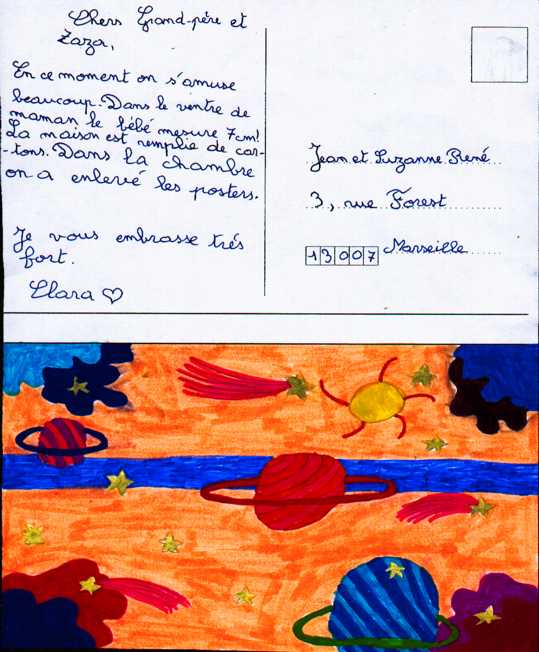 Chers Grand-père et
Zaza,
En ce moment on s'amuse
beaucoup. Dans le ventre de
maman le bébé mesure 7cm!
La maison est remplie de car-
-tons. Dans la chambre
on a enlevé les posters.
Je vous embrasse très
fort.
Clara ♡
Jean et Suzanne René
3, rue Forest
13007 Marseille